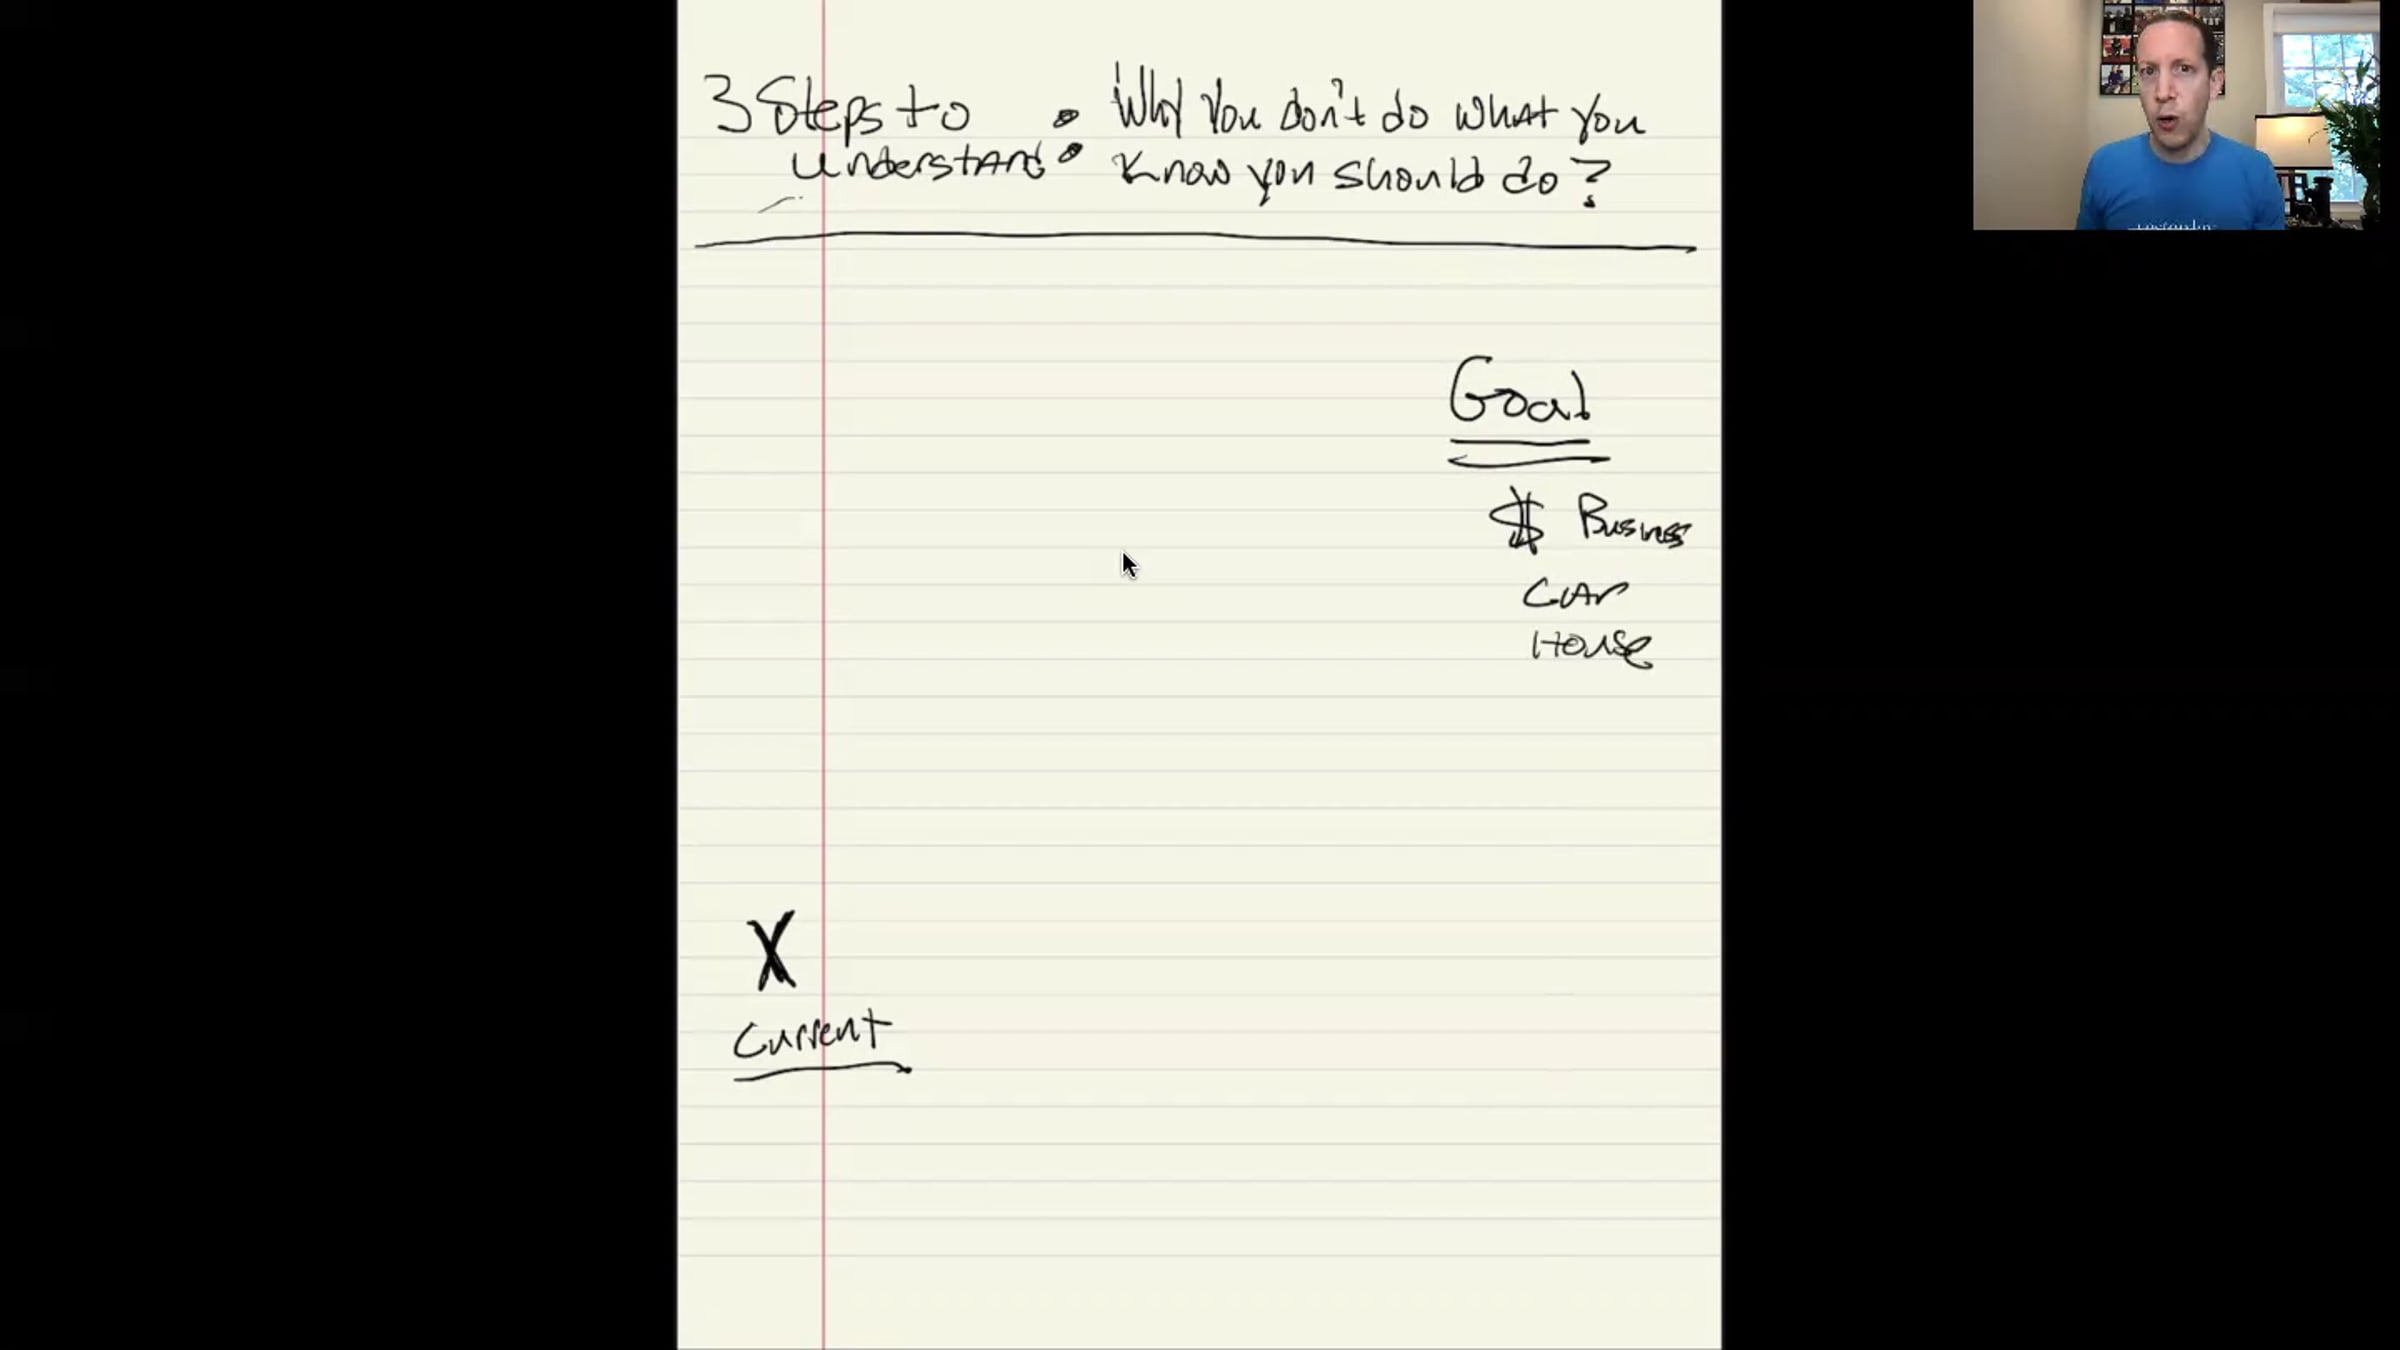 3 Steps to : Why You don't do what you
understand know you should do?
Goal
$ Business
Car
House
X
Current